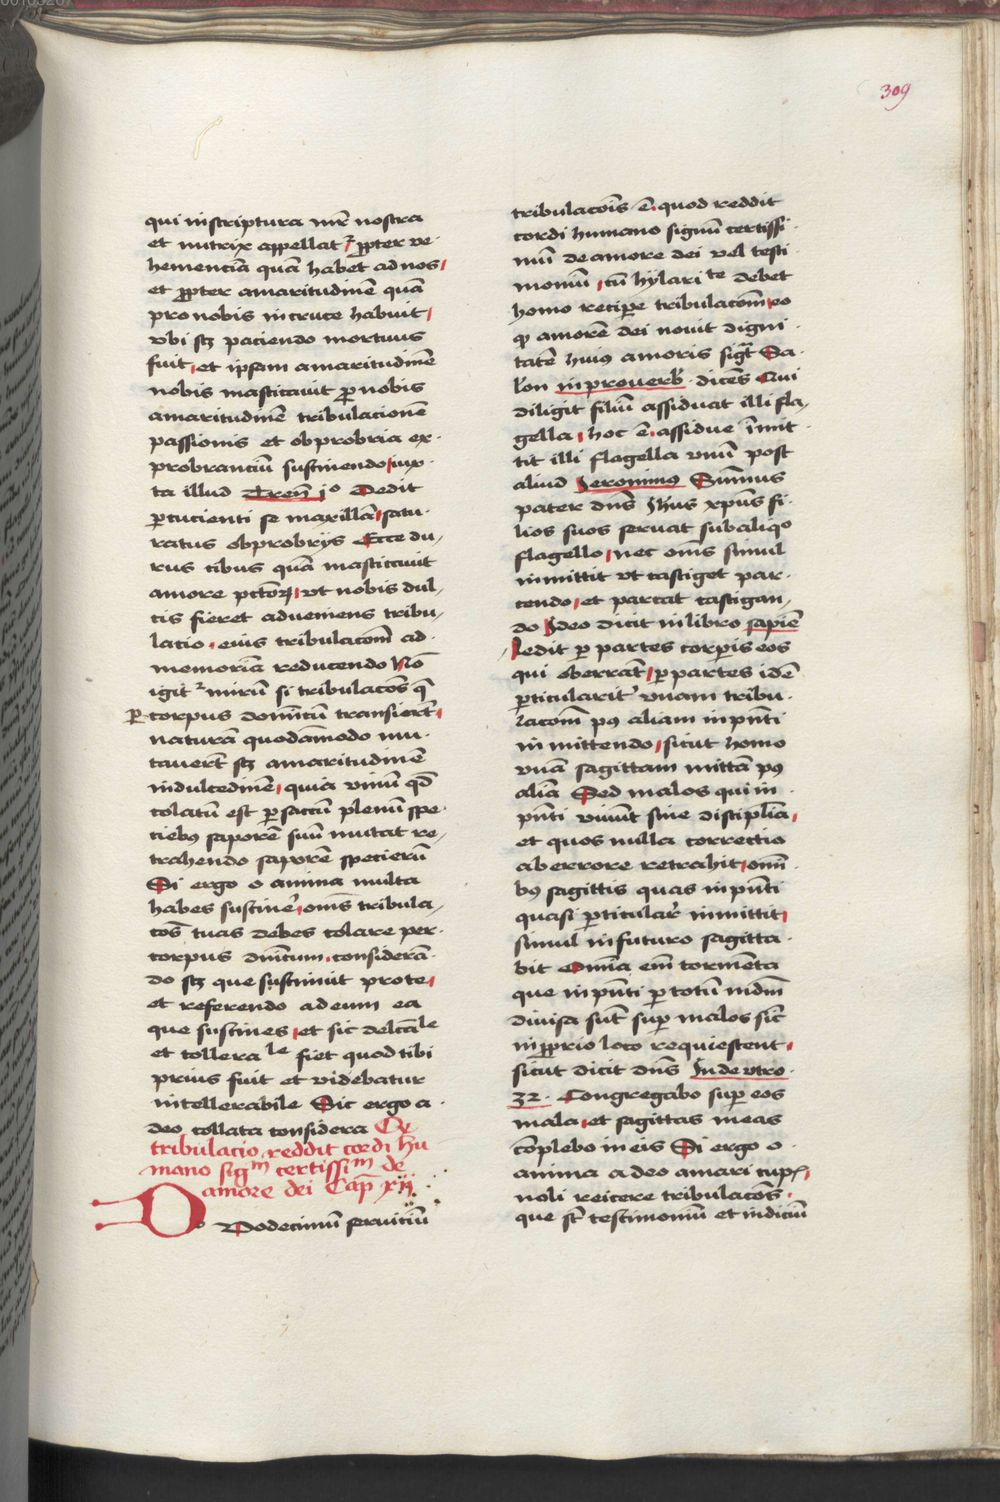 309
qui in scriptura mr̄ nostra
et nutrix appellat̉ ꝓpter ve
hemenciā quā habet ad nos
et ꝓpter amaritudinē quā
pro nobis in cruce habuit
vbi scꝫ paciendo mortuus
fuit et ipsam amaritudinē
nobis masticauit ꝑ nobis
amaritudinē tribulacionē
passionis et obprobria ex
probranciū sustinendo iux
ta illud Tren̄ iº Dedit
ꝑcucienti se maxillā satu
ratus obprobrijs Ecce du
rus cibus quā masticauit
amore pctōrꝫ vt nobis dul
cis fieret adueniens tribu
lacio eius tribulacōm ad
memoriā reducendo Nō
igit̉ mirū si tribulacōs q̄
ꝑ corpus domīcū transierūt
naturā quodāmodo mu
tauert̄ scꝫ amaritudinē
in dulcedinē quia vinū qd̄
colatū est ꝑ saccū plenū spe
ciebꝰ saporē suū mutat re
trahendo saporē specierū
Si ergo o anima multa
habes sustinē omīs tribula
cōs tuas debes colare per
corpus dnīcum considerā
do scꝫ que sustinuit pro te
et referendo ad eum ea
que sustines et sic delcāle
et tollerale fiet quod tibi
prius fuit et videbatur
intellerabile Sic ergo a
deo collata considera Qꝫ
tribulacio reddit cordi hu
mano sigm certissim de
amore dei Cap̄ xij
Dodecimū seruiciū
tribulacōis ē quod reddit
cordi humano signū certissi
mū de amore dei vel testi
moniū cū hylarite debet
homo reciꝑe tribulacōm eo
ꝙ amorē dei nouit digni
tatē huiꝰ amoris sigt̄ Sa
lon in prouerb̄ dicēs Qui
diligit filiū assiduat illi fla
gella hoc ē assidue īmit
tit illi flagella vnū post
aliud Jeronimꝰ Sūmus
pater dn̄s Jh̄us xp̄us fi
lios suos seruat sub aliqº
flagello nec om̄s simul
inmittit vt castiget par
cendo et parcat castigan
do Ideo dicit in libro sapiē
Ledit ꝑ partes corꝑis eos
qui oberrāt ꝑ partes idē
ꝑticularit̉ vnam tribu
lacom pꝰ aliam in pn̄ti
in mittendo sicut homo
vnā sagittam mittā pꝰ
aliā Sed malos qui in
pn̄ti viuūt sine disciplīa
et quos nulla correctio
ab errore retrahit omī
bꝰ sagittis quas in pn̄ti
quasi ꝑticular̄ inmittit
simul in futuro sagitta
bit Omīa em̄ tormēta
que in pn̄ti ꝑ totū mdm̄
diuisa sūt suꝑ malos sic̄
in ꝓprio loco requiescent
sicut dicit dn̄s In deutro
32 Congregabo suꝑ eos
mala et sagittas meas
cōplebo in eis Si ergo o
anima a deo amari cupꝭ
noli reicere tribulacōs
que st̄ testimoniū et indiciū